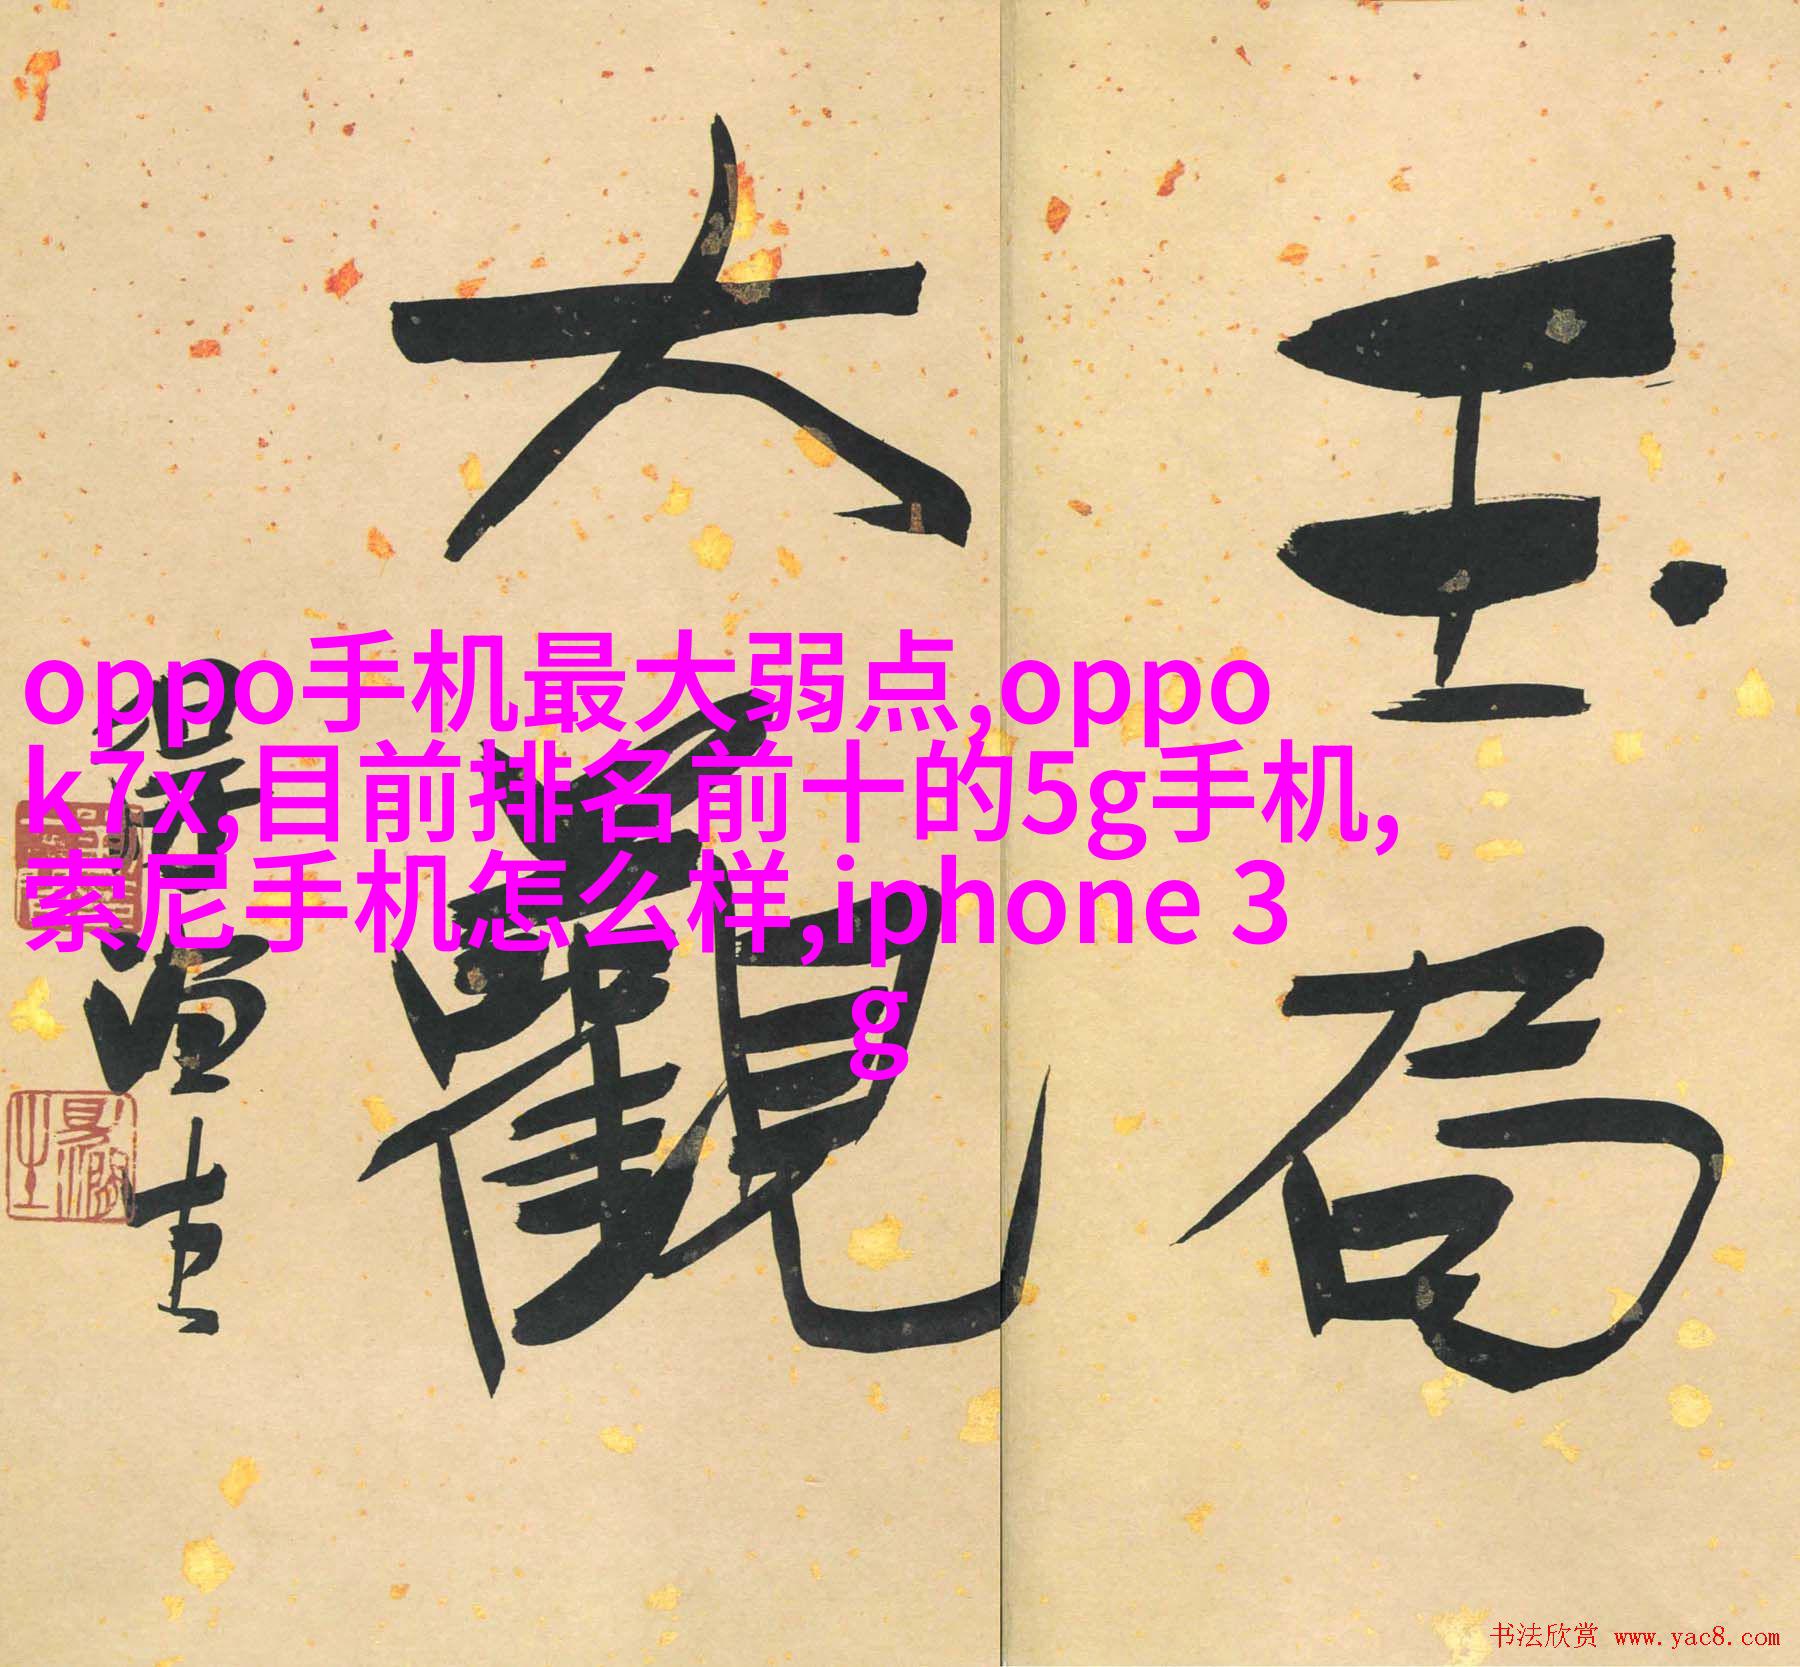 玉局
大觀
oppo手机最大弱点,oppo
k7x,目前排名前十的5g手机,
索尼手机怎么样,iphone 3
g
书法欣赏 www.yac8.com